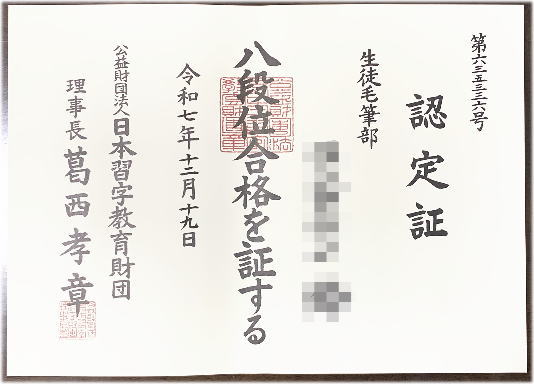 第六三五三三六号
認定証
生徒毛筆部
八段位合格を証する
令和七年十二月十九日
公益財団法人日本習字教育財団
理事長 葛西孝章